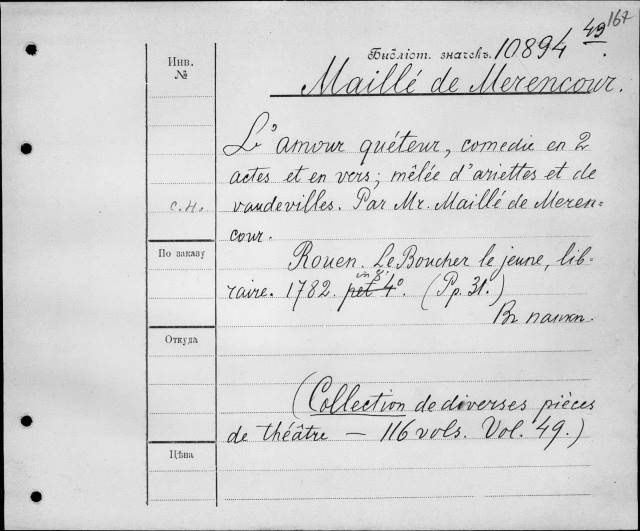 167
Библіот. значекъ. 10894 49.
Инв.
№
Maillé de Merencour.
L'amour quéteur, comedie en 2
actes et en vers; mêlée d'ariettes et de
с.н.
vaudevilles. Par Mr. Maillé de Meren-
cour.
По заказу
Rouen. Le Boucher le jeune, lib-
in 8º.
raire. 1782. pet 4º. (Pp. 31.)
Въ папкѣ.
Откуда
(Collection de diverses pièces
de théâtre — 116 vols. Vol. 49.)
Цѣна